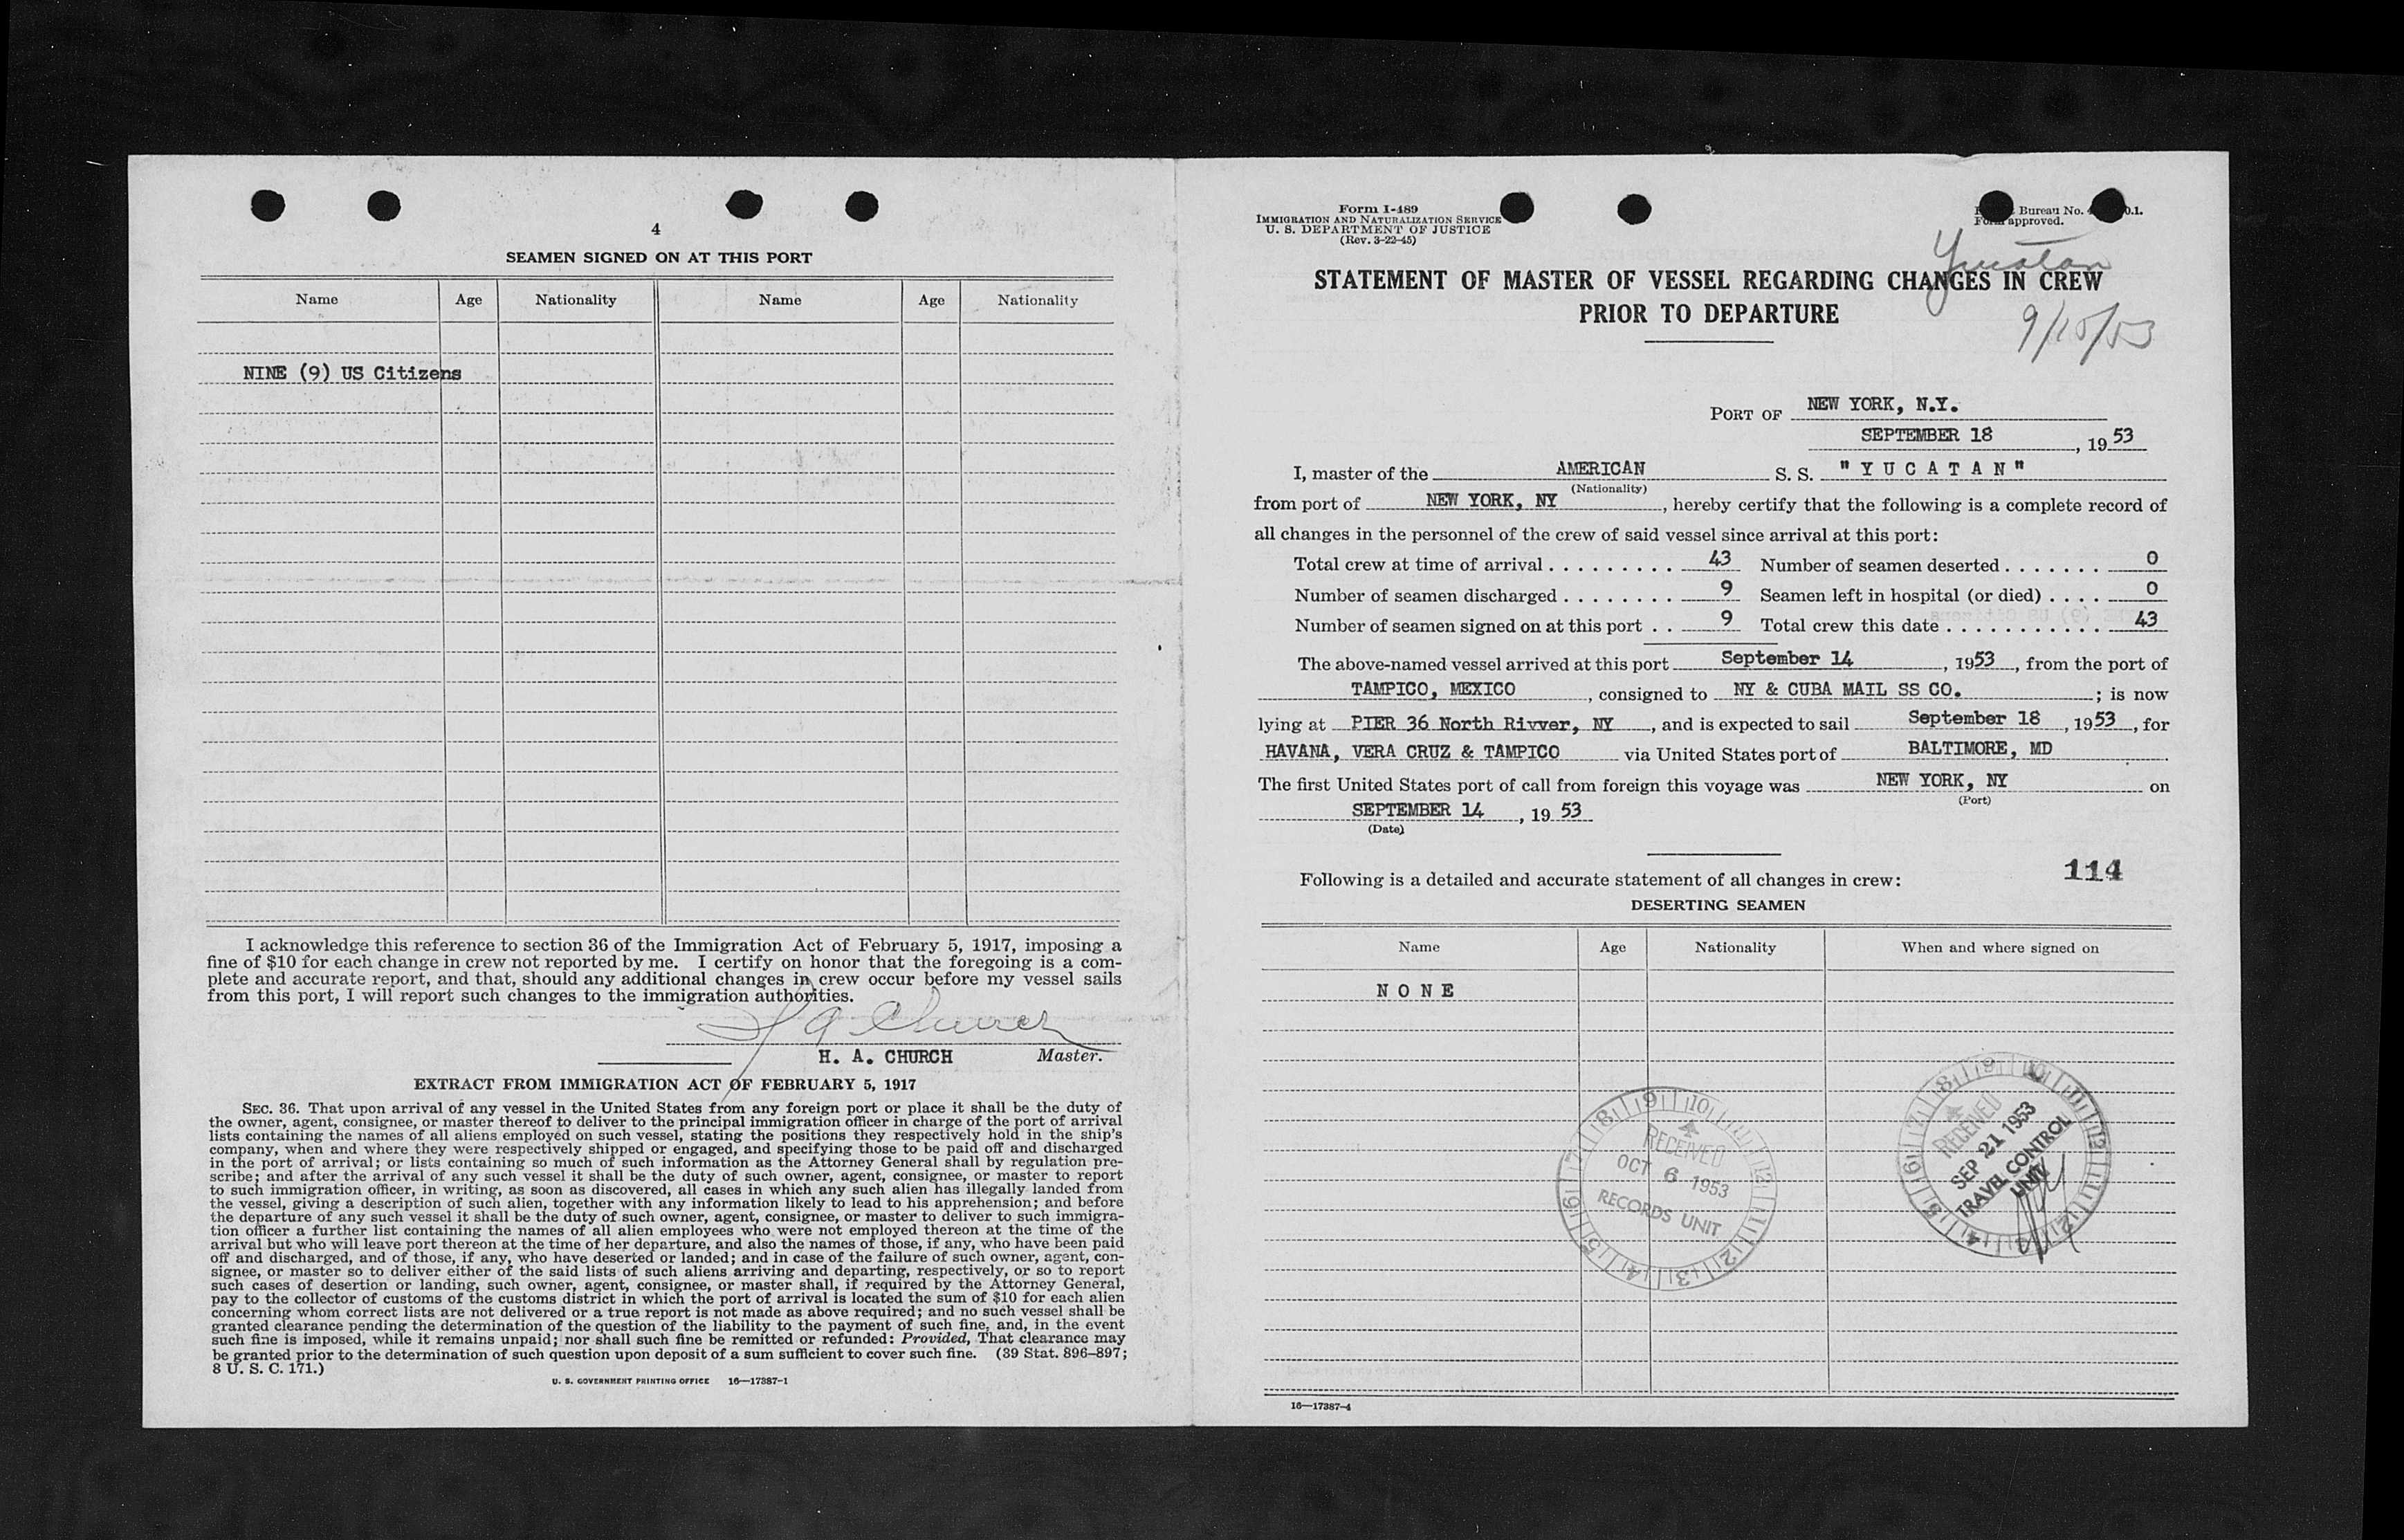 4
SEAMEN SIGNED ON AT THIS PORT
Name Age Nationality Name Age Nationality
NINE (9) US Citizens
I acknowledge this reference to section 36 of the Immigration Act of February 5, 1917, imposing a
fine of $10 for each change in crew not reported by me. I certify on honor that the foregoing is a com-
plete and accurate report, and that, should any additional changes in crew occur before my vessel sails
from this port, I will report such changes to the immigration authorities.
H. A. CHURCH Master.
EXTRACT FROM IMMIGRATION ACT OF FEBRUARY 5, 1917
SEC. 36. That upon arrival of any vessel in the United States from any foreign port or place it shall be the duty of
the owner, agent, consignee, or master thereof to deliver to the principal immigration officer in charge of the port of arrival
lists containing the names of all aliens employed on such vessel, stating the positions they respectively hold in the ship's
company, when and where they were respectively shipped or engaged, and specifying those to be paid off and discharged
in the port of arrival; or lists containing so much of such information as the Attorney General shall by regulation pre-
scribe; and after the arrival of any such vessel it shall be the duty of such owner, agent, consignee, or master to report
to such immigration officer, in writing, as soon as discovered, all cases in which any such alien has illegally landed from
the vessel, giving a description of such alien, together with any information likely to lead to his apprehension; and before
the departure of any such vessel it shall be the duty of such owner, agent, consignee, or master to deliver to such immigra-
tion officer a further list containing the names of all alien employees who were not employed thereon at the time of the
arrival but who will leave port thereon at the time of her departure, and also the names of those, if any, who have been paid
off and discharged, and of those, if any, who have deserted or landed; and in case of the failure of such owner, agent, con-
signee, or master so to deliver either of the said lists of such aliens arriving and departing, respectively, or so to report
such cases of desertion or landing, such owner, agent, consignee, or master shall, if required by the Attorney General,
pay to the collector of customs of the customs district in which the port of arrival is located the sum of $10 for each alien
concerning whom correct lists are not delivered or a true report is not made as above required; and no such vessel shall be
granted clearance pending the determination of the question of the liability to the payment of such fine, and, in the event
such fine is imposed, while it remains unpaid; nor shall such fine be remitted or refunded: Provided, That clearance may
be granted prior to the determination of such question upon deposit of a sum sufficient to cover such fine. (39 Stat. 896–897;
8 U. S. C. 171.)
U. S. GOVERNMENT PRINTING OFFICE 16—17387-1
Form I-489
IMMIGRATION AND NATURALIZATION SERVICE
U. S. DEPARTMENT OF JUSTICE
(Rev. 3-22-45)
Bureau No.
approved.
Yucatan
STATEMENT OF MASTER OF VESSEL REGARDING CHANGES IN CREW
PRIOR TO DEPARTURE
9/15/53
PORT OF NEW YORK, N.Y.
SEPTEMBER 18, 1953
I, master of the AMERICAN S. S. "YUCATAN"
(Nationality)
from port of NEW YORK, NY, hereby certify that the following is a complete record of
all changes in the personnel of the crew of said vessel since arrival at this port:
Total crew at time of arrival . . . . . . . . . 43 Number of seamen deserted . . . . . . . 0
Number of seamen discharged . . . . . . . . 9 Seamen left in hospital (or died) . . . . 0
Number of seamen signed on at this port . . 9 Total crew this date . . . . . . . . . . . 43
The above-named vessel arrived at this port September 14, 1953, from the port of
TAMPICO, MEXICO, consigned to NY & CUBA MAIL SS CO. ; is now
lying at PIER 36 North Rivver, NY, and is expected to sail September 18, 1953, for
HAVANA, VERA CRUZ & TAMPICO via United States port of BALTIMORE, MD.
The first United States port of call from foreign this voyage was NEW YORK, NY on
(Port)
SEPTEMBER 14, 1953
(Date)
114
Following is a detailed and accurate statement of all changes in crew:
DESERTING SEAMEN
Name Age Nationality When and where signed on
NONE
RECEIVED
OCT 6 1953
RECORDS UNIT
RECEIVED
SEP 21 1953
TRAVEL CONTROL
UNIT
16—17387-4